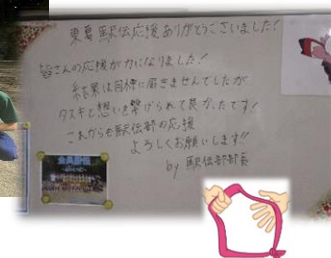 東葛駅伝応援ありがとうございました!
皆さんの応援が力になりました!
結果は目標に届きませんでしたが
タスキと想いを繋げられて良かったです!
これからも駅伝部の応援
よろしくお願いします!!
by 駅伝部部長